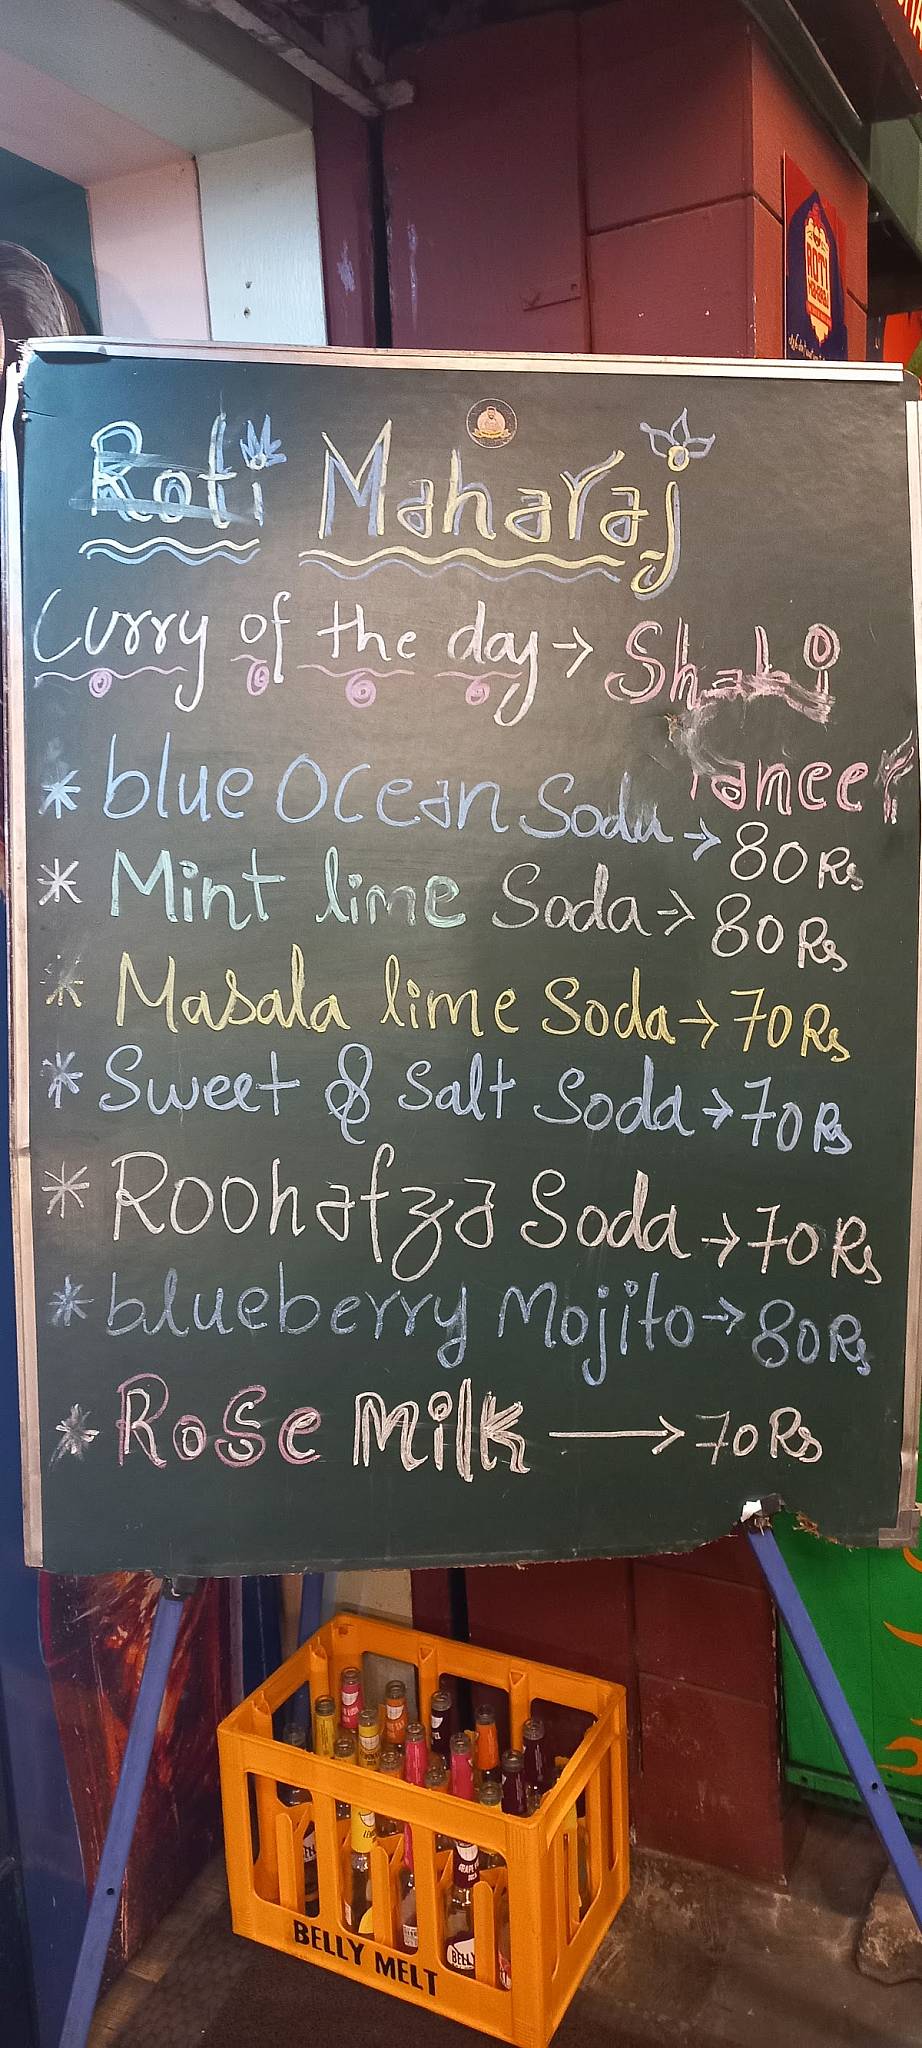 Roti Maharaj
Curry of the day → Shahi
Paneer
* blue Ocean Soda → 80 Rs
* Mint lime Soda → 80 Rs
* Masala lime Soda → 70 Rs
* Sweet & Salt Soda → 70 Rs
* Roohafza Soda → 70 Rs
* blueberry Mojito → 80 Rs
* Rose Milk → 70 Rs
ROTI
BELLY MELT